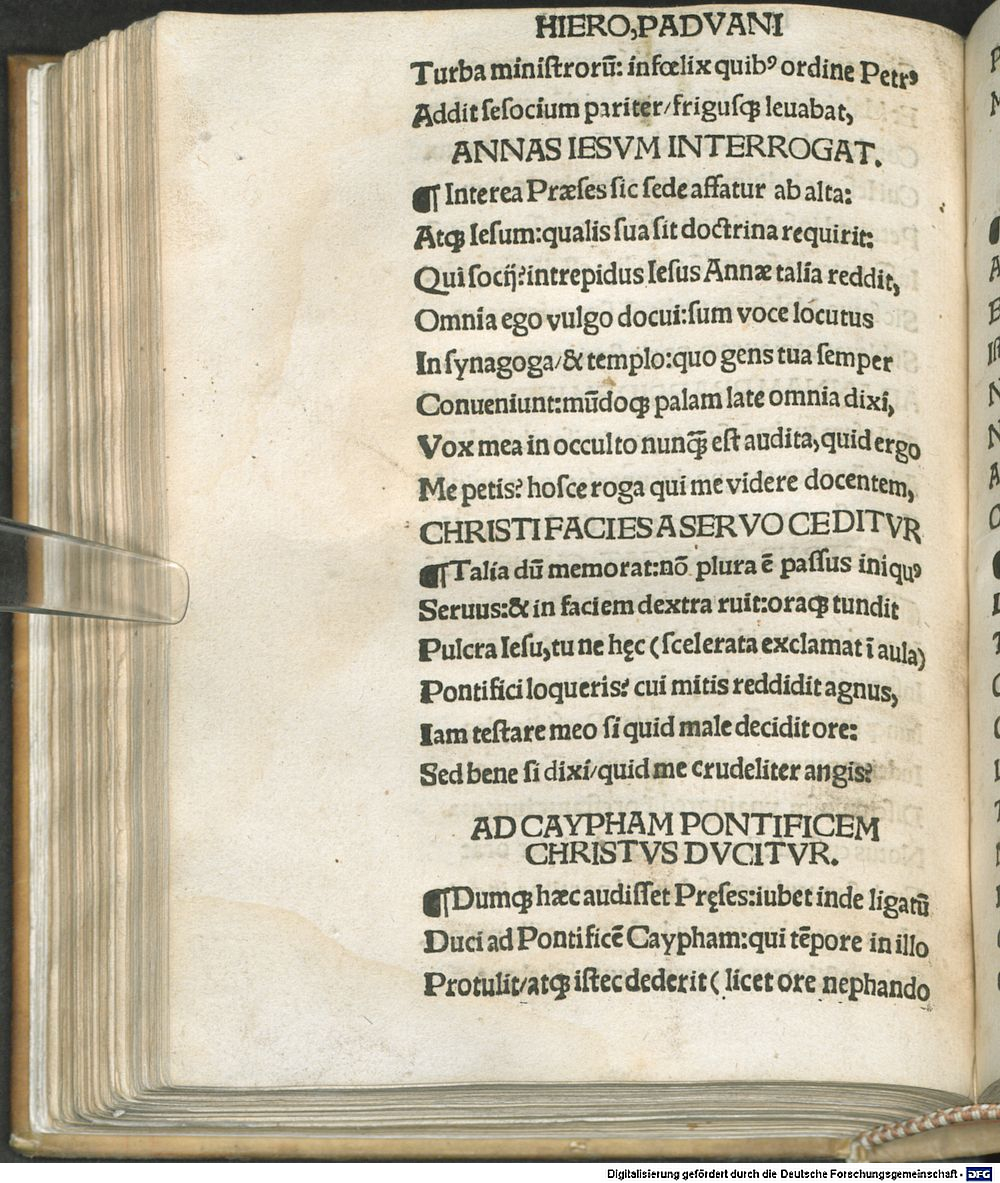 HIERO, PADVANI
Turba miniſtrorū: infœlix quibꝰ ordine Petrꝰ
Addit ſeſocium pariter/friguſqꝫ leuabat,
ANNAS IESVM INTERROGAT.
¶ Interea Præſes ſic ſede affatur ab alta:
Atqꝫ Ieſum:qualis ſua ſit doctrina requirit:
Qui ſocij?intrepidus Ieſus Annæ talía reddit,
Omnia ego vulgo docui:ſum voce locutus
In ſynagoga/& templo:quo gens tua ſemper
Conueniunt:mūdoqꝫ palam late omnia dixí,
Vox mea in occulto nunqꝫ̄ eſt audita,quid ergo
Me petis? hoſce roga qui me videre docentem,
CHRISTI FACIES A SERVO CEDITVR
¶Talía dū memorat:nō plura ē paſſus iniquꝰ
Seruus:& in faciem dextra ruit:oraqꝫ tundit
Pulcra Ieſu,tu ne hęc (ſcelerata exclamat ī aula)
Pontifici loqueris? cui mitis reddidit agnus,
Iam teſtare meo ſi quid male decidit ore:
Sed bene ſi dixí/quid me crudeliter angis?
AD CAYPHAM PONTIFICEM
CHRISTVS DVCITVR.
¶Dumqꝫ hæc audiſſet Pręſes:iubet inde ligatū
Duci ad Pontificē Caypham:qui tēpore in illo
Protulit/atqꝫ iſtec dederit ( licet ore nephando
Digitalisierung gefördert durch die Deutsche Forschungsgemeinschaft - DFG